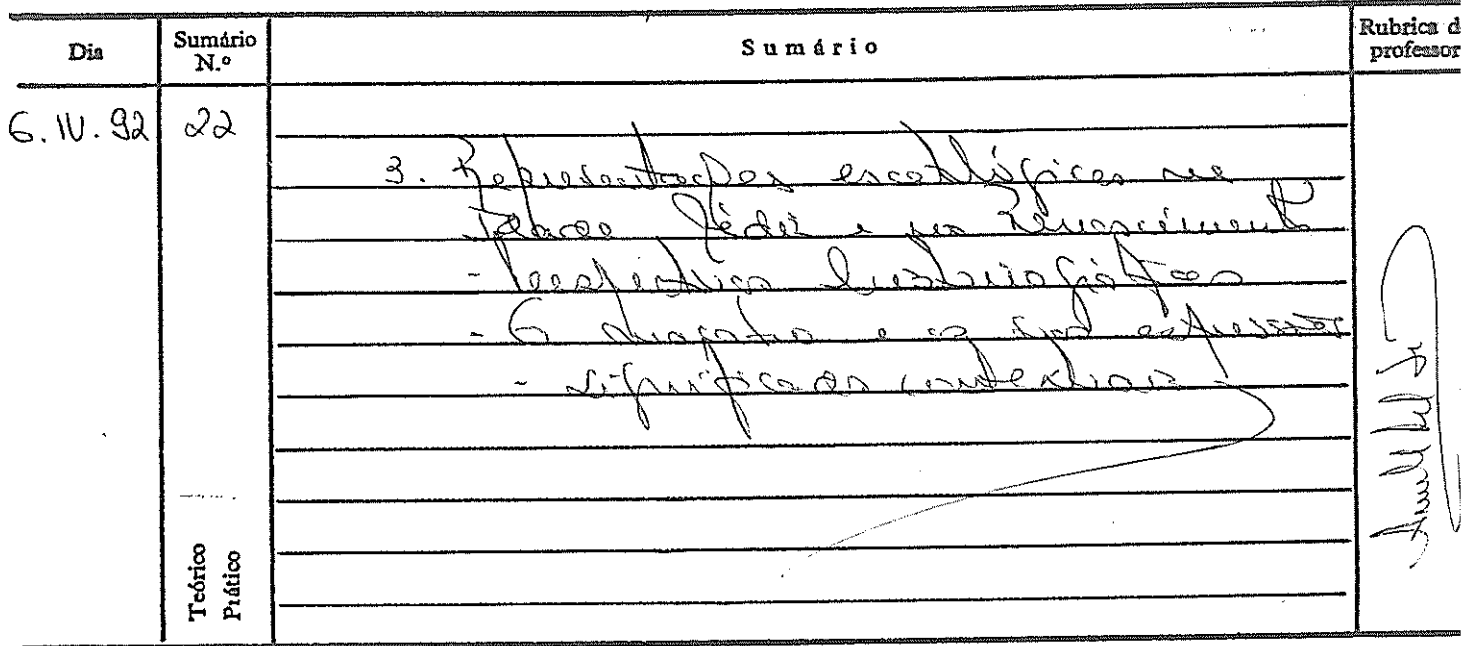 Dia
Sumário
N.º
Sumário
Rubrica d
professor
6.IV.92
22
3. Representações escatológicas na
Idade Média e no Renascimento
- Perspectiva historiográfica
- O e as suas expressões
- significados contextuais
Teórico
Prático